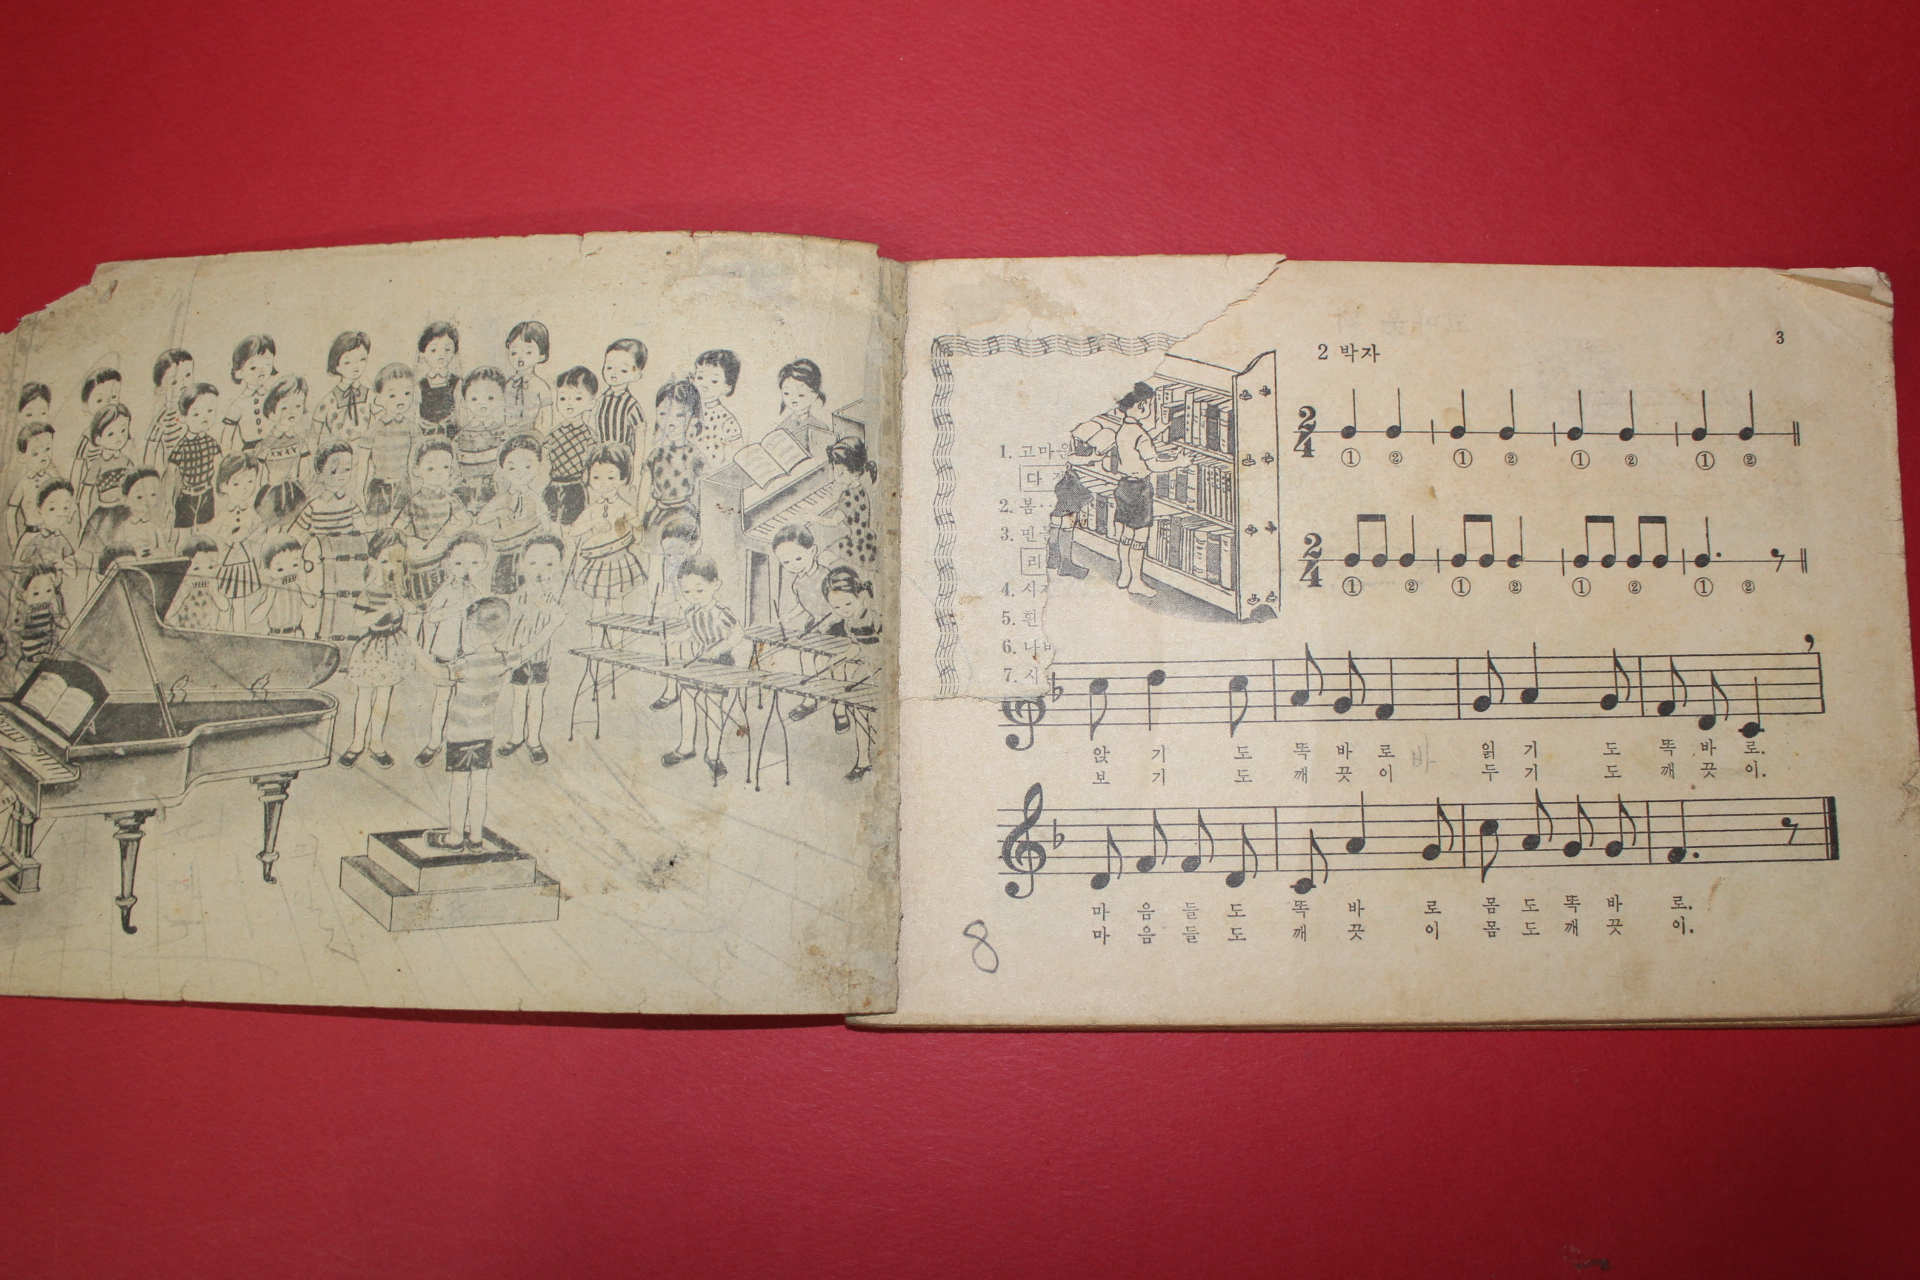 3
2 박자
2/4
① ② ① ② ① ② ① ②
2/4
① ② ① ② ① ② ① ②
1. 고마운
다
2. 봄
3. 민
리
4. 시
5. 흰
6. 나비
7. 시
앉 기 도 똑 바 로 읽 기 도 똑 바 로.
보 기 도 깨 끗 이 두 기 도 깨 끗 이.
마 음 들 도 똑 바 로 몸 도 똑 바 로.
마 음 들 도 깨 끗 이 몸 도 깨 끗 이.
8